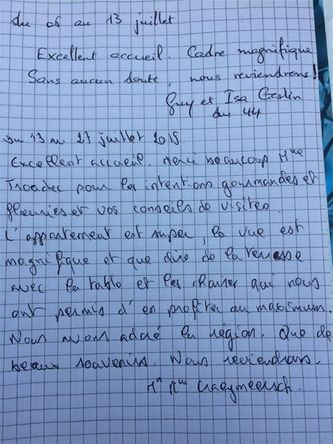 du 06 au 13 juillet
Excellent accueil. Cadre magnifique
Sans aucun doute, nous reviendrons !
Guy et Isa
du 44
Du 13 au 27 juillet 2015
Excellent accueil. Merci beaucoup Mme
pour les intentions gourmandes et
fleuries et vos conseils de visites
L'appartement est super, la vue est
magnifique et que dire de la terrasse
avec la table et les chaises qui nous
ont permis d'en profiter au maximum.
Nous avons adoré la région. Que de
beaux souvenirs. Nous reviendrons.
Mr Mme